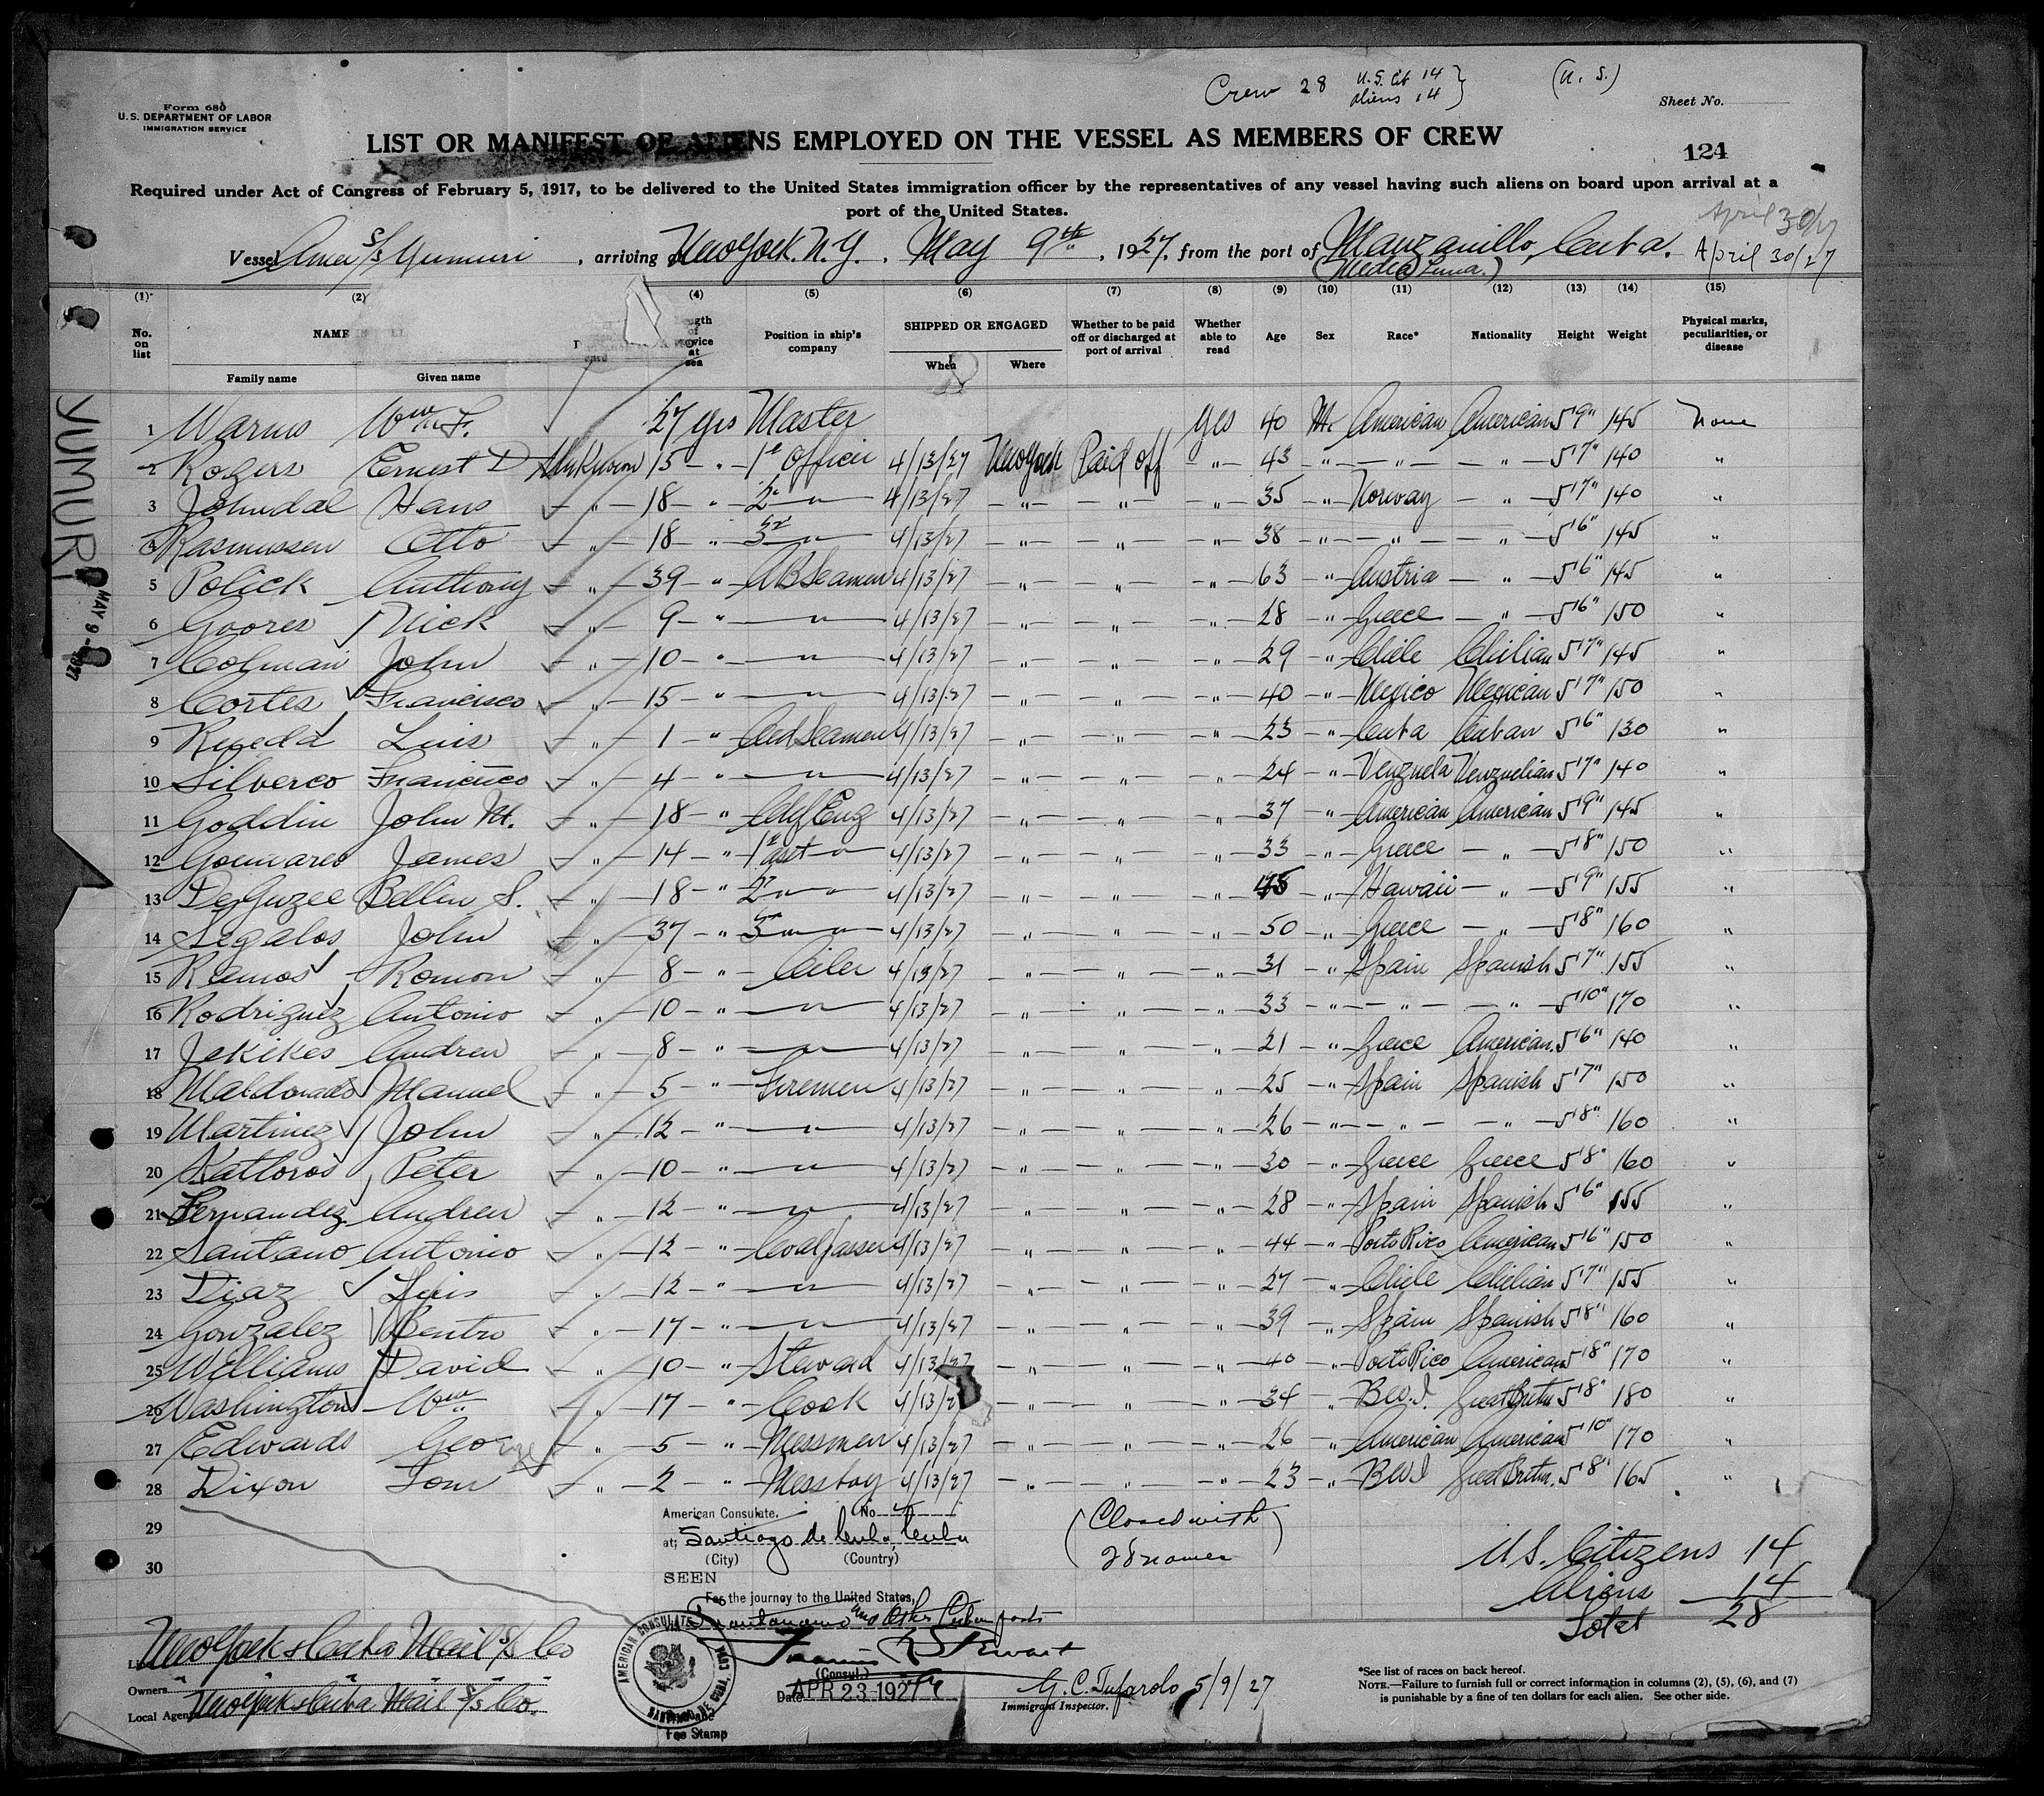 Crew 28 U.S. Cit 14 } (U. S.)
Aliens 14
Form 680
U. S. DEPARTMENT OF LABOR
IMMIGRATION SERVICE
Sheet No.
LIST OR MANIFEST OF ALIENS EMPLOYED ON THE VESSEL AS MEMBERS OF CREW
124
Required under Act of Congress of February 5, 1917, to be delivered to the United States immigration officer by the representatives of any vessel having such aliens on board upon arrival at a
port of the United States.
April 30/27
Vessel Amer S/S Yumuri, arriving at New York. N.Y., May 9th, 1927, from the port of Manzanillo, Cuba. April 30/27
(Media Luna.)
(1) (2) (4) (5) (6) (7) (8) (9) (10) (11) (12) (13) (14) (15)
No. on list NAME Length of service at sea Position in ship's company SHIPPED OR ENGAGED Whether to be paid off or discharged at port of arrival Whether able to read Age Sex Race* Nationality Height Weight Physical marks, peculiarities, or disease
Family name Given name When Where
YUMURI
MAY 9 1927
1 Warms Wm F. 27 yrs Master yes 40 M. American American 5'9" 145 None
2 Rogers Ernest D Unknown 15 " 1st Officer 4/13/27 New York Paid off " 43 " " " 5'7" 140 "
3 Johndal Hans " 18 " 2" " 4/13/27 " " " 35 " Norway " 5'7" 140 "
4 Rasmussen Otto " 18 " 3rd " 4/13/27 " " " 38 " " " 5'6" 145 "
5 Polick Anthony " 39 " AB Seaman 4/13/27 " " " 63 " Austria " 5'6" 145 "
6 Goores Nick " 9 " " 4/13/27 " " " 28 " Greece " 5'6" 150 "
7 Colman John " 10 " " 4/13/27 " " " 29 " Chile Chilian 5'7" 145 "
8 Cortes Francisco " 15 " " 4/13/27 " " " 40 " Mexico Mexican 5'7" 150 "
9 Luis " 1 " Ord Seamen 4/13/27 " " " 23 " Cuba Cuban 5'6" 130 "
10 Silverco Francisco " 4 " " 4/13/27 " " " 24 " Venzuela Venzuelian 5'7" 140 "
11 Goddin John M. " 18 " Chf Eng 4/13/27 " " " 37 " American American 5'9" 145 "
12 James " 14 " 1st asst " 4/13/27 " " " 33 " Greece " 5'8" 150 "
13 DeGuzee Bellin S. " 18 " 2" " " 4/13/27 " " " 45 " Hawaii " 5'9" 155 "
14 Segalos John " 37 " 3" " " 4/13/27 " " " 50 " Greece " 5'8" 160 "
15 Ramos Romon " 8 " Oiler 4/19/27 " " " 31 " Spain Spanish 5'7" 155 "
16 Rodriguez Antonio " 10 " " 4/13/27 " " " 33 " " " 5'10" 170 "
17 Jekikes Andrew " 8 " " 4/13/27 " " " 21 " Greece American. 5'6" 140 "
18 Maldonado Manuel " 5 " Firemen 4/13/27 " " " 25 " Spain Spanish 5'7" 150 "
19 Martinez John " 12 " " 4/13/27 " " " 26 " " " 5'8" 160 "
20 Peter " 10 " " 4/13/27 " " " 30 " Greece Greece 5'8" 160 "
21 Fernandez Andrew " 12 " " 4/13/27 " " " 28 " Spain Spanish 5'6" 155 "
22 Santano Antonio " 12 " Coal passer 4/13/27 " " " 44 " Porto Rico American 5'6" 150 "
23 Diaz Luis " 12 " " 4/13/27 " " " 27 " Chile Chilian 5'7" 155 "
24 Gonzalez Bentro " 17 " " 4/13/27 " " " 39 " Spain Spanish 5'8" 160 "
25 Williams David " 10 " Steward 4/13/27 " " " 40 " Porto Rico American 5'8" 170 "
26 Washington Wm " 17 " Cook 4/13/27 " " " 34 " B.W.I. Great Britn 5'8" 180 "
27 Edwards George " 5 " Messmen 4/13/27 " " " 26 " American American 5'10" 170 "
28 Dixon Tom " 2 " Messboy 4/13/27 " " " 23 " BWI Great Britn. 5'8" 165 "
29
30
American Consulate. No.
at Santiago de Cuba, Cuba
(City) (Country)
SEEN
For the journey to the United States,
Guantanamo and other Cuban ports
(Closed with
28 names)
U.S. Citizens 14
Aliens 14
Total 28
New York & Cuba Mail S/S Co
Owners " " " " "
Local Agents New York & Cuba Mail S/S Co.
AMERICAN CONSULATE
SANTIAGO DE CUBA, CUBA
Francis R Stewart
(Consul.)
Date APR 23 1927
Fee Stamp
G. C. Tufarolo 5/9/27
Immigrant Inspector.
*See list of races on back hereof.
NOTE.—Failure to furnish full or correct information in columns (2), (5), (6), and (7)
is punishable by a fine of ten dollars for each alien. See other side.